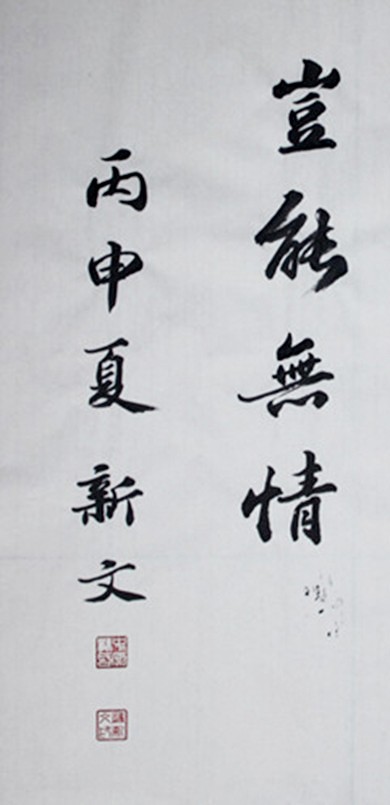 豈能無情
丙申夏新文